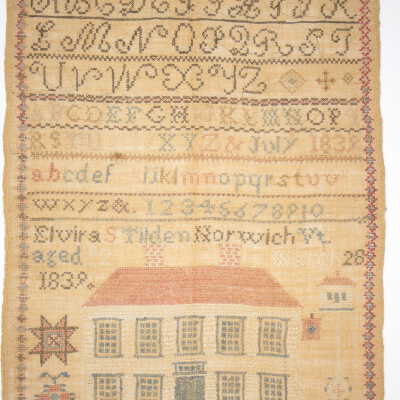 A B C D E
L M N O P Q R S T
U V W X Y Z
A B C D E F G H K L M N O P
R S X Y Z & July 1839
a b c d e f k l m n o p q r s t u v
w x y z &. 1 2 3 4 5 6 7 8 9 10
Elvira S Tilden Norwich Vt.
aged 28
1839.